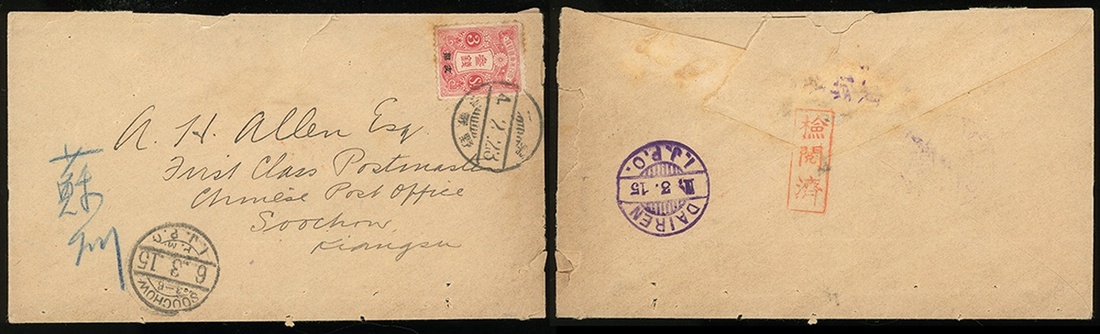 3
支那
參錢
4.2.23
A. H. Allen Esq.
First Class Postmaster
Chinese Post Office
Soochow
Kiangsu
蘇州
SOOCHOW
6.3.15
I.J.P.O.
DAIREN
III.3.15
I.J.P.O.
檢閲濟